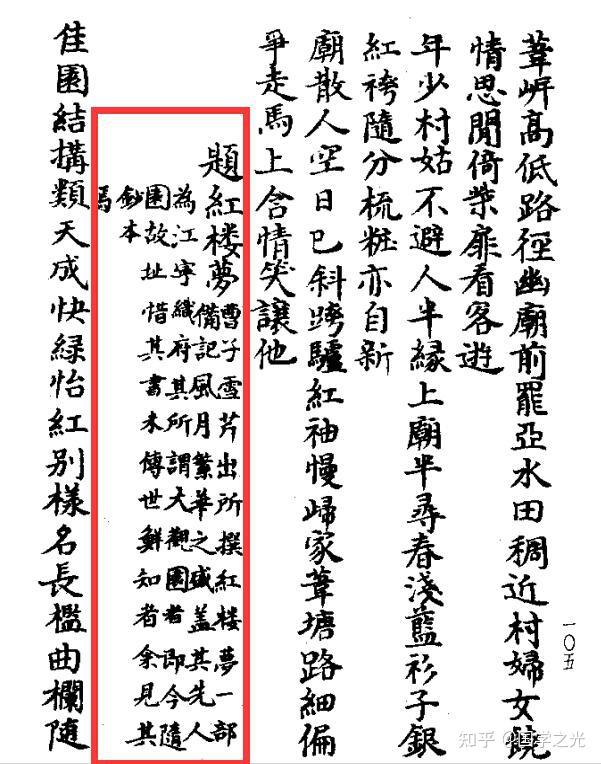 葦岸高低路徑幽廟前罷亞水田稠近村婦女饒
情思閒倚柴扉看客遊
年少村姑不避人半緣上廟半尋春淺藍衫子銀
紅袴隨分梳粧亦自新
廟散人空日已斜跨驢紅袖慢歸家葦塘路細偏
爭走馬上含情笑讓他
題紅楼夢
曹子雪芹出所撰紅楼夢一部
備記風月繁華之盛盖其先人
為江寧織府其所謂大觀園者即今隨
園故址惜其書未傳世鮮知者余見其
鈔本
焉
佳園結搆類天成快綠怡紅别樣名長檻曲欄隨
一〇五
知乎 @国学之光